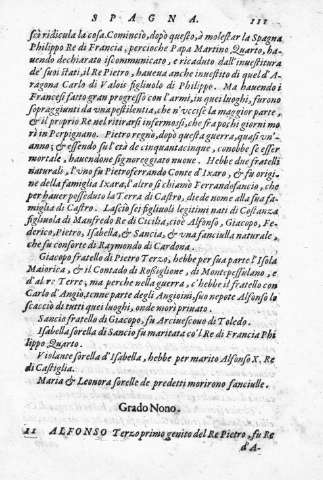 SPAGNA. 111
scò ridicula la cosa. Cominciò, dopò questo, à molestar la Spagna
Philippo Re di Francia, percioche Papa Martino Quarto, ha-
uendo dechiarato iscommunicato, e ricaduto dall'inuestitura
de' suoi stati, il Re Pietro, haueua anche inuestito di quel d'A-
ragona Carlo di Valois figliuolo di Philippo. Ma hauendo i
Francesi fatto gran progresso con l'armi, in quei luoghi, furono
sopraggiunti da vna pestilentia, che n'vccise la maggior parte,
& il proprio Re nel ritirarsi infermosi, che fra pochi giorni mo
rì in Perpignano. Pietro regnò, dopò questa guerra, quasi vn'
anno; & essendo su l'età de cinquantacinque, conobbe se esser
mortale, hauendone signoreggiato nuoue. Hebbe due fratelli
naturali, l'vno fu Pietroferrando Conte d'Ixaro, & fu origi-
ne della famiglia Ixara, l'altro si chiamò Ferrandosancio, che
per hauer posseduto la Terra di Castro, diede nome alla sua fa-
miglia di Castro. Lasciò sei figliuoli legitimi nati di Costanza
figliuola di Manfredo Re di Cicilia, cioè Alfonso, Giacopo, Fe-
derico, Pietro, Isabella, & Sancia, & vna fanciulla naturale,
che fu consorte di Raymondo di Cardona.
Giacopo fratello di Pietro Terzo, hebbe per sua parte l'Isola
Maiorica, & il Contado di Rossiglione, di Montepessulano, e
d'altre Terre, ma perche nella guerra, c'hebbe il fratello con
Carlo d'Angiò, tenne parte degli Angioini, suo nepote Alfonso lo
scacciò di tutti quei luoghi, onde morì priuato.
Sancio fratello di Giacopo, fu Arciuescouo di Toledo.
Isabella sorella di Sancio fu maritata cò'l Re di Francia Phi
lippo Quarto.
Violante sorella d'Isabella, hebbe per marito Alfonso X. Re
di Castiglia.
Maria & Leonora sorelle de predetti morirono fanciulle.
Grado Nono.
11 ALFONSO Terzo primo genito del Re Pietro, fu Re
d'A-